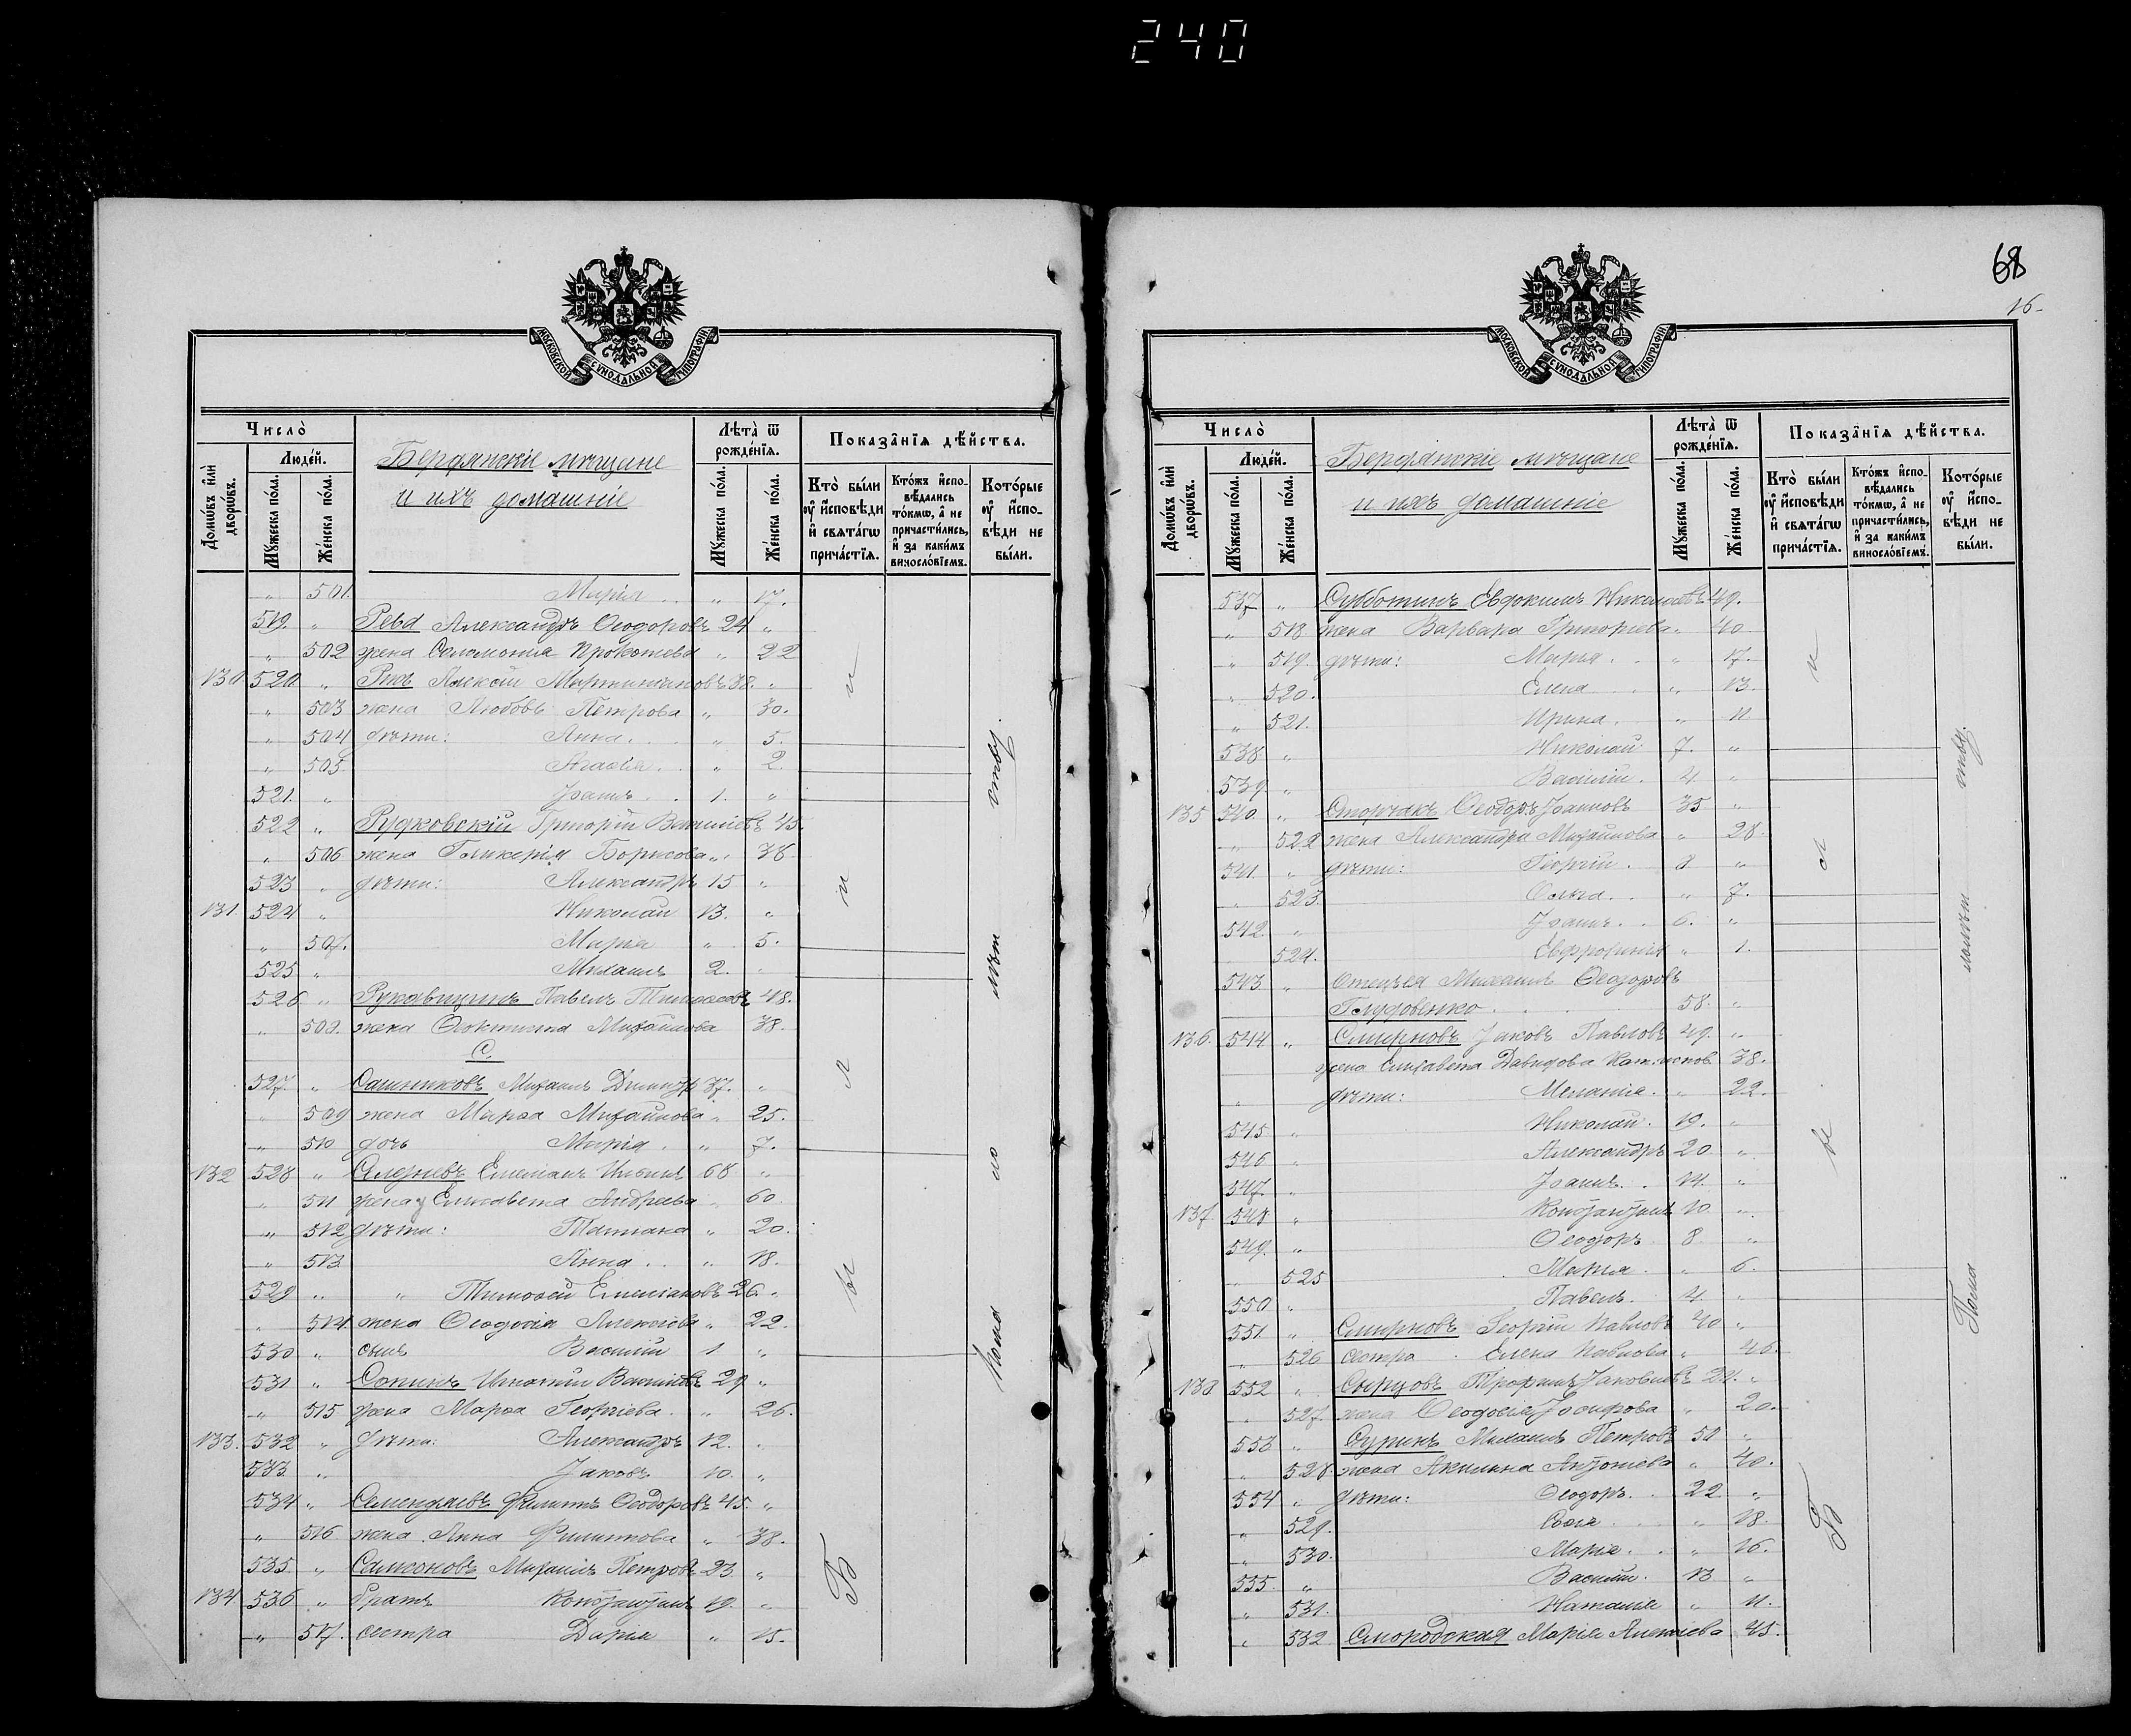 240
68
16
МОСКОВСКОЙ СѴНОДАЛЬНОЙ ТИПОГРАФІИ
Число̀
Домѡ́въ и҆лѝ дворѡ́въ.
Люде́й.
Мꙋ́жеска по́ла.
Же́нска по́ла.
Бердянскіе мѣщане
и ихъ домашніе
Лѣта̀ ѿ рожде́нїѧ.
Мꙋ́жеска по́ла.
Же́нска по́ла.
Показа̑нїѧ дѣ́йства.
Кто̀ бы́ли ᲂу҆ и҆сповѣ́ди и҆ свѧта́гѡ прича́стїѧ.
Кто́жъ и҆сповѣ́дались то́кмѡ, а҆ не причасти́лись, и҆ за каки́мъ винословїемъ.
Кото́рые ᲂу҆ и҆сповѣ́ди не бы́ли.
" 501. Марія " 17.
519. " Александръ Ѳеодоровъ 24 "
" 502 жена Соломонія Прокопіева " 22
130 520 " Алексѣй 38. "
" 503 жена Любовь Петрова " 30.
" 504 дѣти: Анна " 5.
" 505 " 2.
521. " Іоаннъ 1. "
522 " Рудковскій Григорій Васильевъ 45.
" 506 жена Гликерія Борисова " 38
523 " дѣти: Александръ 15 "
131 524 " Николай 13. "
" 507. Марія " 5.
525 " Михаилъ 2. "
526 " Рукавицынъ Павелъ 48.
" 508. жена Михайлова 38.
С.
527. " Сашниковъ Михаилъ Димитр 37. "
" 509 жена Марѳа Михайлова " 25.
" 510 дочь Марія " 7.
132 528 " Емеліанъ Ильинъ 68 "
" 511 жена Елисавета Андреева " 60
" 512 дѣти: Татіана " 20.
" 513 Анна " 18.
529 " " Тимоѳей Емеліановъ 26. "
" 514 жена Ѳеодосія Алексіева " 22.
530 " сынъ Василій 1 "
531 " Сопинъ Игнатій Васильевъ 29 "
" 515 жена Марѳа Георгіева " 26.
133. 532 " дѣти: Александръ 12. "
533. " Іаковъ 10. "
534 " Филиппъ Ѳеодоровъ 45. "
" 516 жена Анна Филиппова " 38.
535 " Самсоновъ Михаилъ Петровъ 23 "
134 536 " братъ 19. "
" 517. сестра Дарія " 15.
МОСКОВСКОЙ СѴНОДАЛЬНОЙ ТИПОГРАФІИ
Число̀
Домѡ́въ и҆лѝ дворѡ́въ.
Люде́й.
Мꙋ́жеска по́ла.
Же́нска по́ла.
Бердянскіе мѣщане
и ихъ домашніе
Лѣта̀ ѿ рожде́нїѧ.
Мꙋ́жеска по́ла.
Же́нска по́ла.
Показа̑нїѧ дѣ́йства.
Кто̀ бы́ли ᲂу҆ и҆сповѣ́ди и҆ свѧта́гѡ прича́стїѧ.
Кто́жъ и҆сповѣ́дались то́кмѡ, а҆ не причасти́лись, и҆ за каки́мъ винословїемъ.
Кото́рые ᲂу҆ и҆сповѣ́ди не бы́ли.
537 " Субботинъ Евдокимъ Николаевъ 49.
" 518 жена Варвара Григоріева " 40
" 519. дѣти: Марія " 17.
" 520. Елена " 13.
" 521. Ирина " 11
538 " Николай 7. "
539 " Василій 4 "
135 540. " Ѳеодоръ Іоанновъ 35 "
" 522 жена Александра Михайлова " 28.
541. " дѣти: Георгій 8 "
" 523. Ольга " 7.
542. " Іоаннъ 6. "
524. Евфросинія " 1.
543 " Михаилъ Ѳеодоровъ
Глудовенко 58. "
136. 544 " Смирновъ Іаковъ Павловъ 49. "
жена Елисавета Давидова 38.
" дѣти: Меланія " 22.
545 " Николай 19. "
546 " Александръ 20 "
547. " Іоаннъ 14. "
137 548 " 10 "
549. " Ѳеодоръ 8 "
" 525 Марія " 6.
550 " Павелъ 4 "
551. " Смирновъ Георгій Павловъ 40 "
" 526 сестра Елена Павлова " 46.
138 552 " Сырцовъ Трофимъ Іаковлевъ 24. "
" 527. жена Ѳеодосія Іосифова " 20.
553 " Суринъ Михаилъ Петровъ 50 "
" 528. жена Акилина " 40.
554 " дѣти: Ѳеодоръ 22 "
" 529. " 18.
" 530. Марія " 16.
555. " Василій 13 "
" 531. Наталія " 11.
" 532 Смородская Марія Алексіева 45.